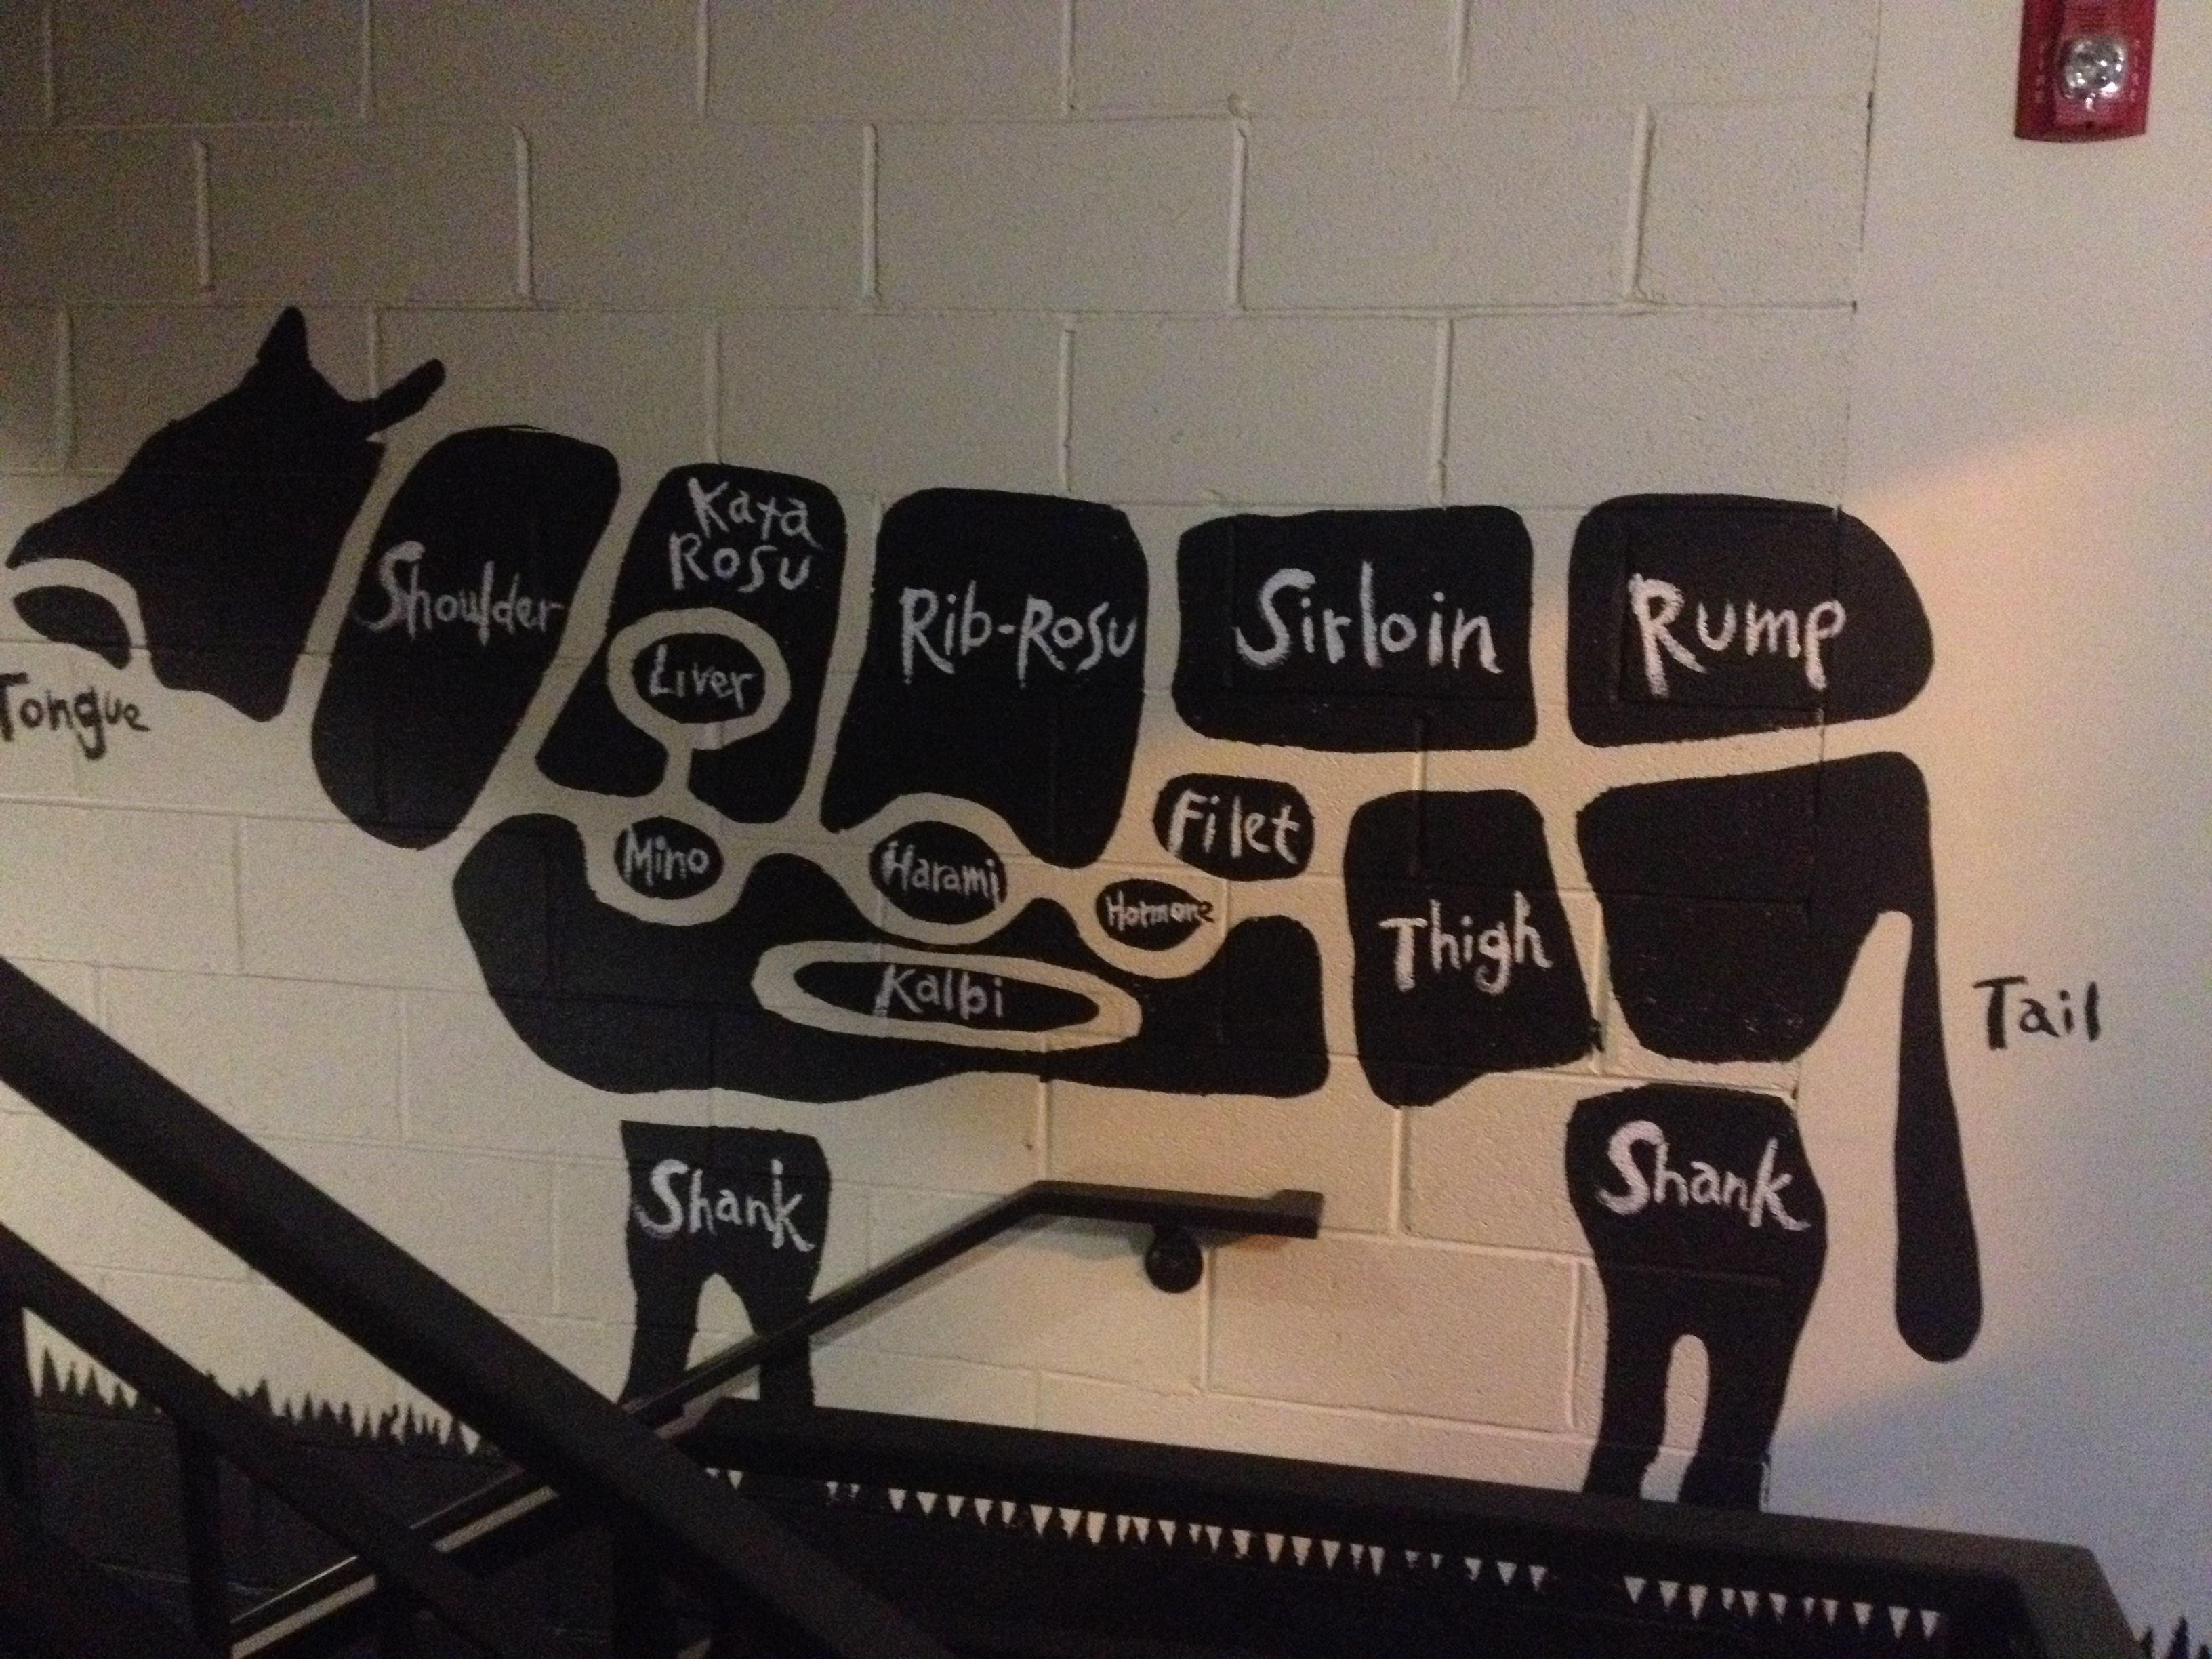 Tongue
Shoulder
Kata
Rosu
Liver
Rib-Rosu
Sirloin
Rump
Mino
Harami
Hormone
Filet
Kalbi
Thigh
Tail
Shank
Shank